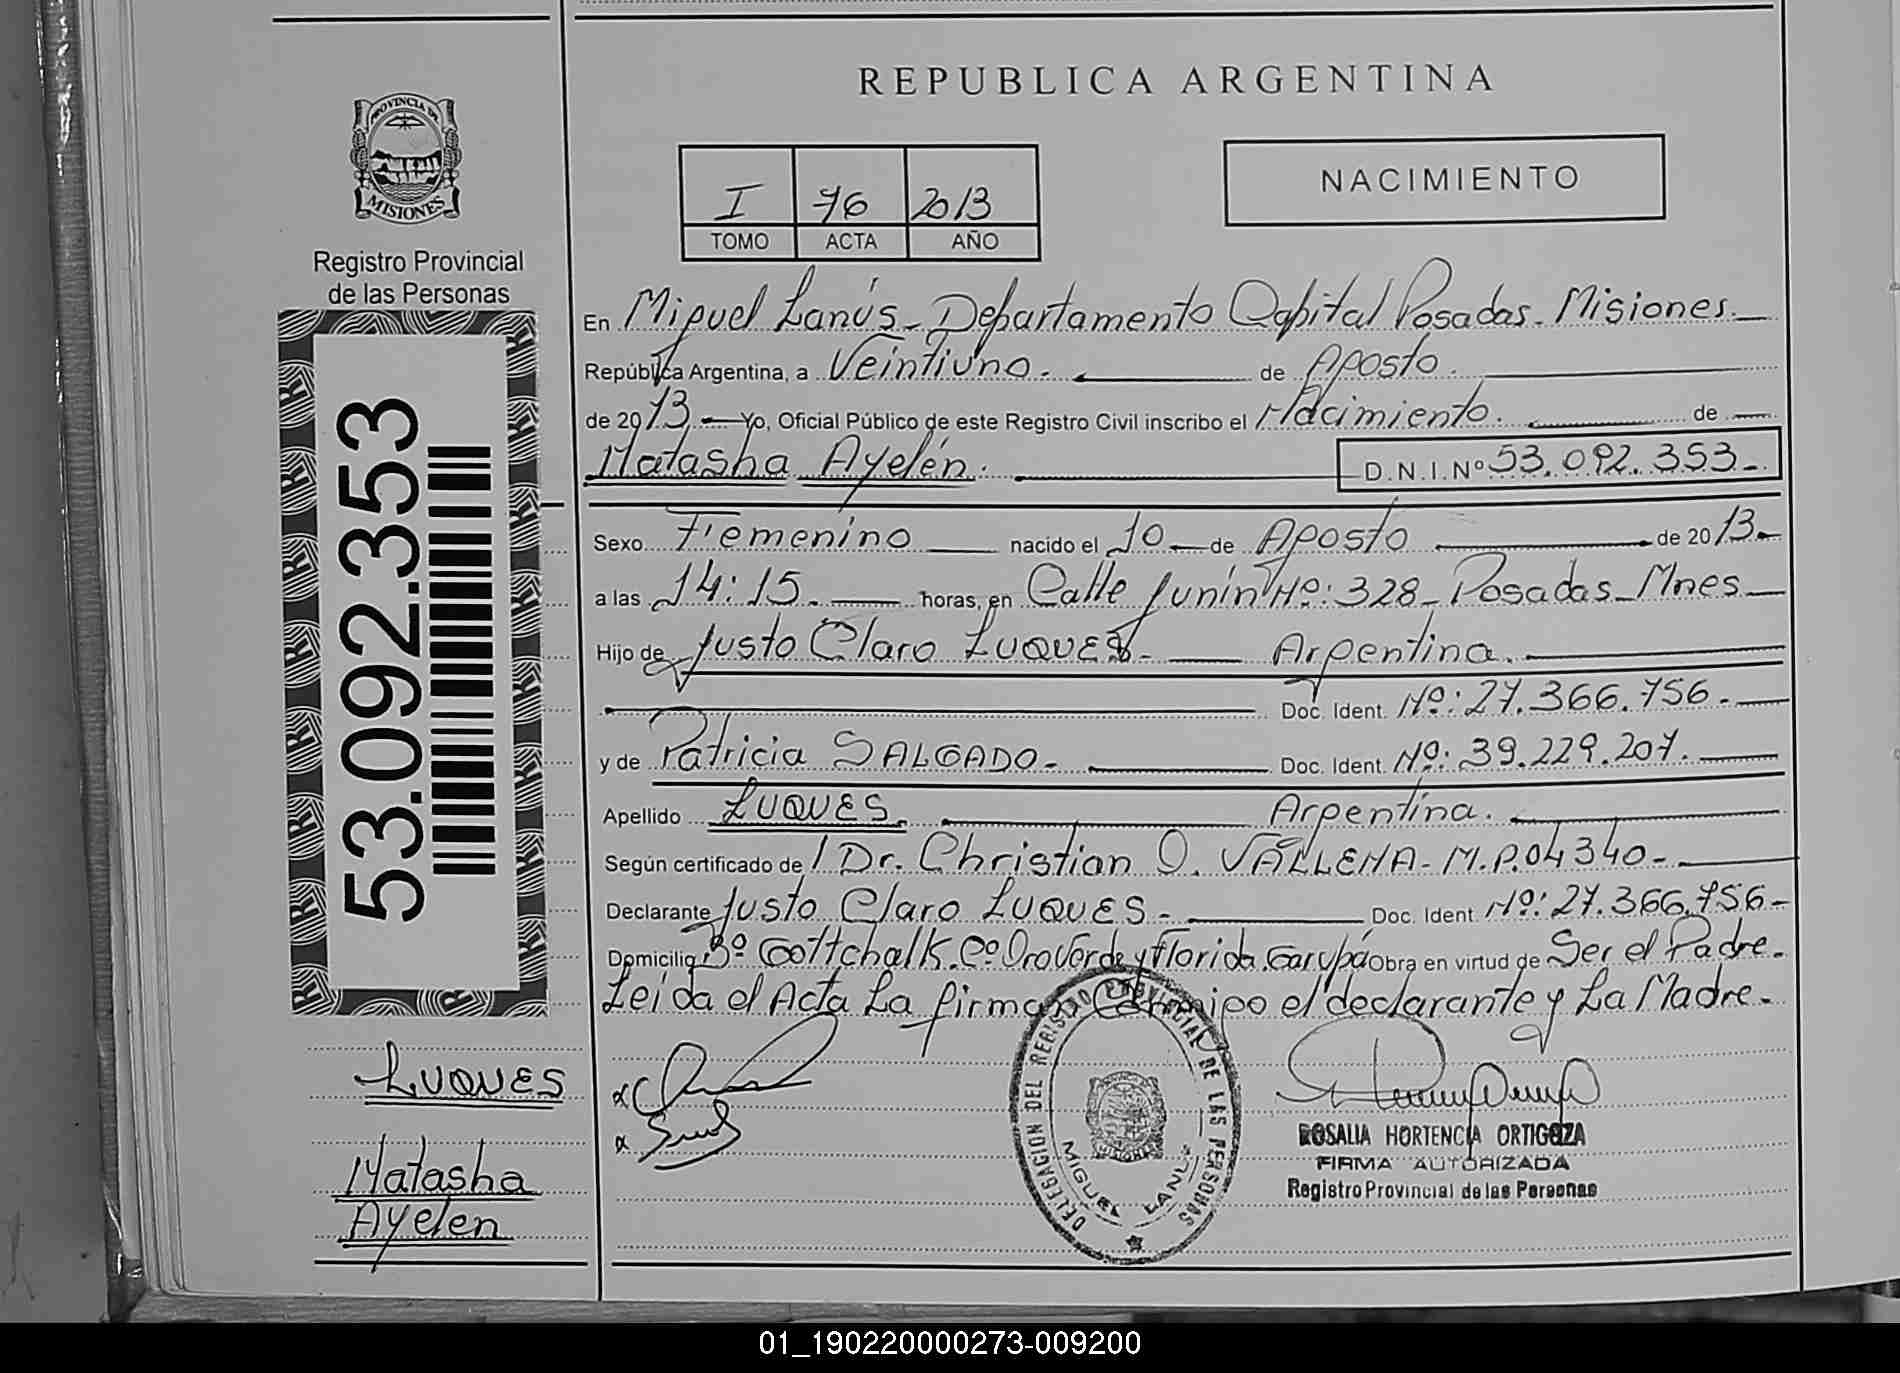 REPUBLICA ARGENTINA
PROVINCIA DE
MISIONES
Registro Provincial
de las Personas
NACIMIENTO
I 76 2013
TOMO ACTA AÑO
53.092.353
En Miguel Lanús - Departamento Capital Posadas - Misiones.
República Argentina, a Veintiuno. de Agosto.
de 2013 Yo, Oficial Público de este Registro Civil inscribo el Nacimiento. de
Natasha Ayelén. D.N.I.Nº 53.092.353-
Sexo Femenino nacido el 10 de Agosto de 2013-
a las 14:15. horas, en Calle Junín Nº: 328 - Posadas - Mnes
Hijo de Justo Claro LUQUES - Argentina.
Doc. Ident. Nº: 27.366.756.
y de Patricia SALGADO. Doc. Ident. Nº: 39.229.207.
Apellido LUQUES. Argentina.
Según certificado de Dr. Christian O. VALLENA - M.P.04340-
Declarante Justo Claro LUQUES - Doc. Ident. Nº: 27.366.756-
Domicilio Bº Gottchalk. Cº Oro Verde y Florida. Garupá Obra en virtud de Ser el Padre.
Leída el Acta La firman Conmigo el declarante y La Madre.
LUQUES
Natasha
Ayelen
DELEGACION DEL REGISTRO PROVINCIAL DE LAS PERSONAS
MIGUEL LANUS
ROSALIA HORTENCIA ORTIGOZA
FIRMA AUTORIZADA
Registro Provincial de las Personas
01_190220000273-009200